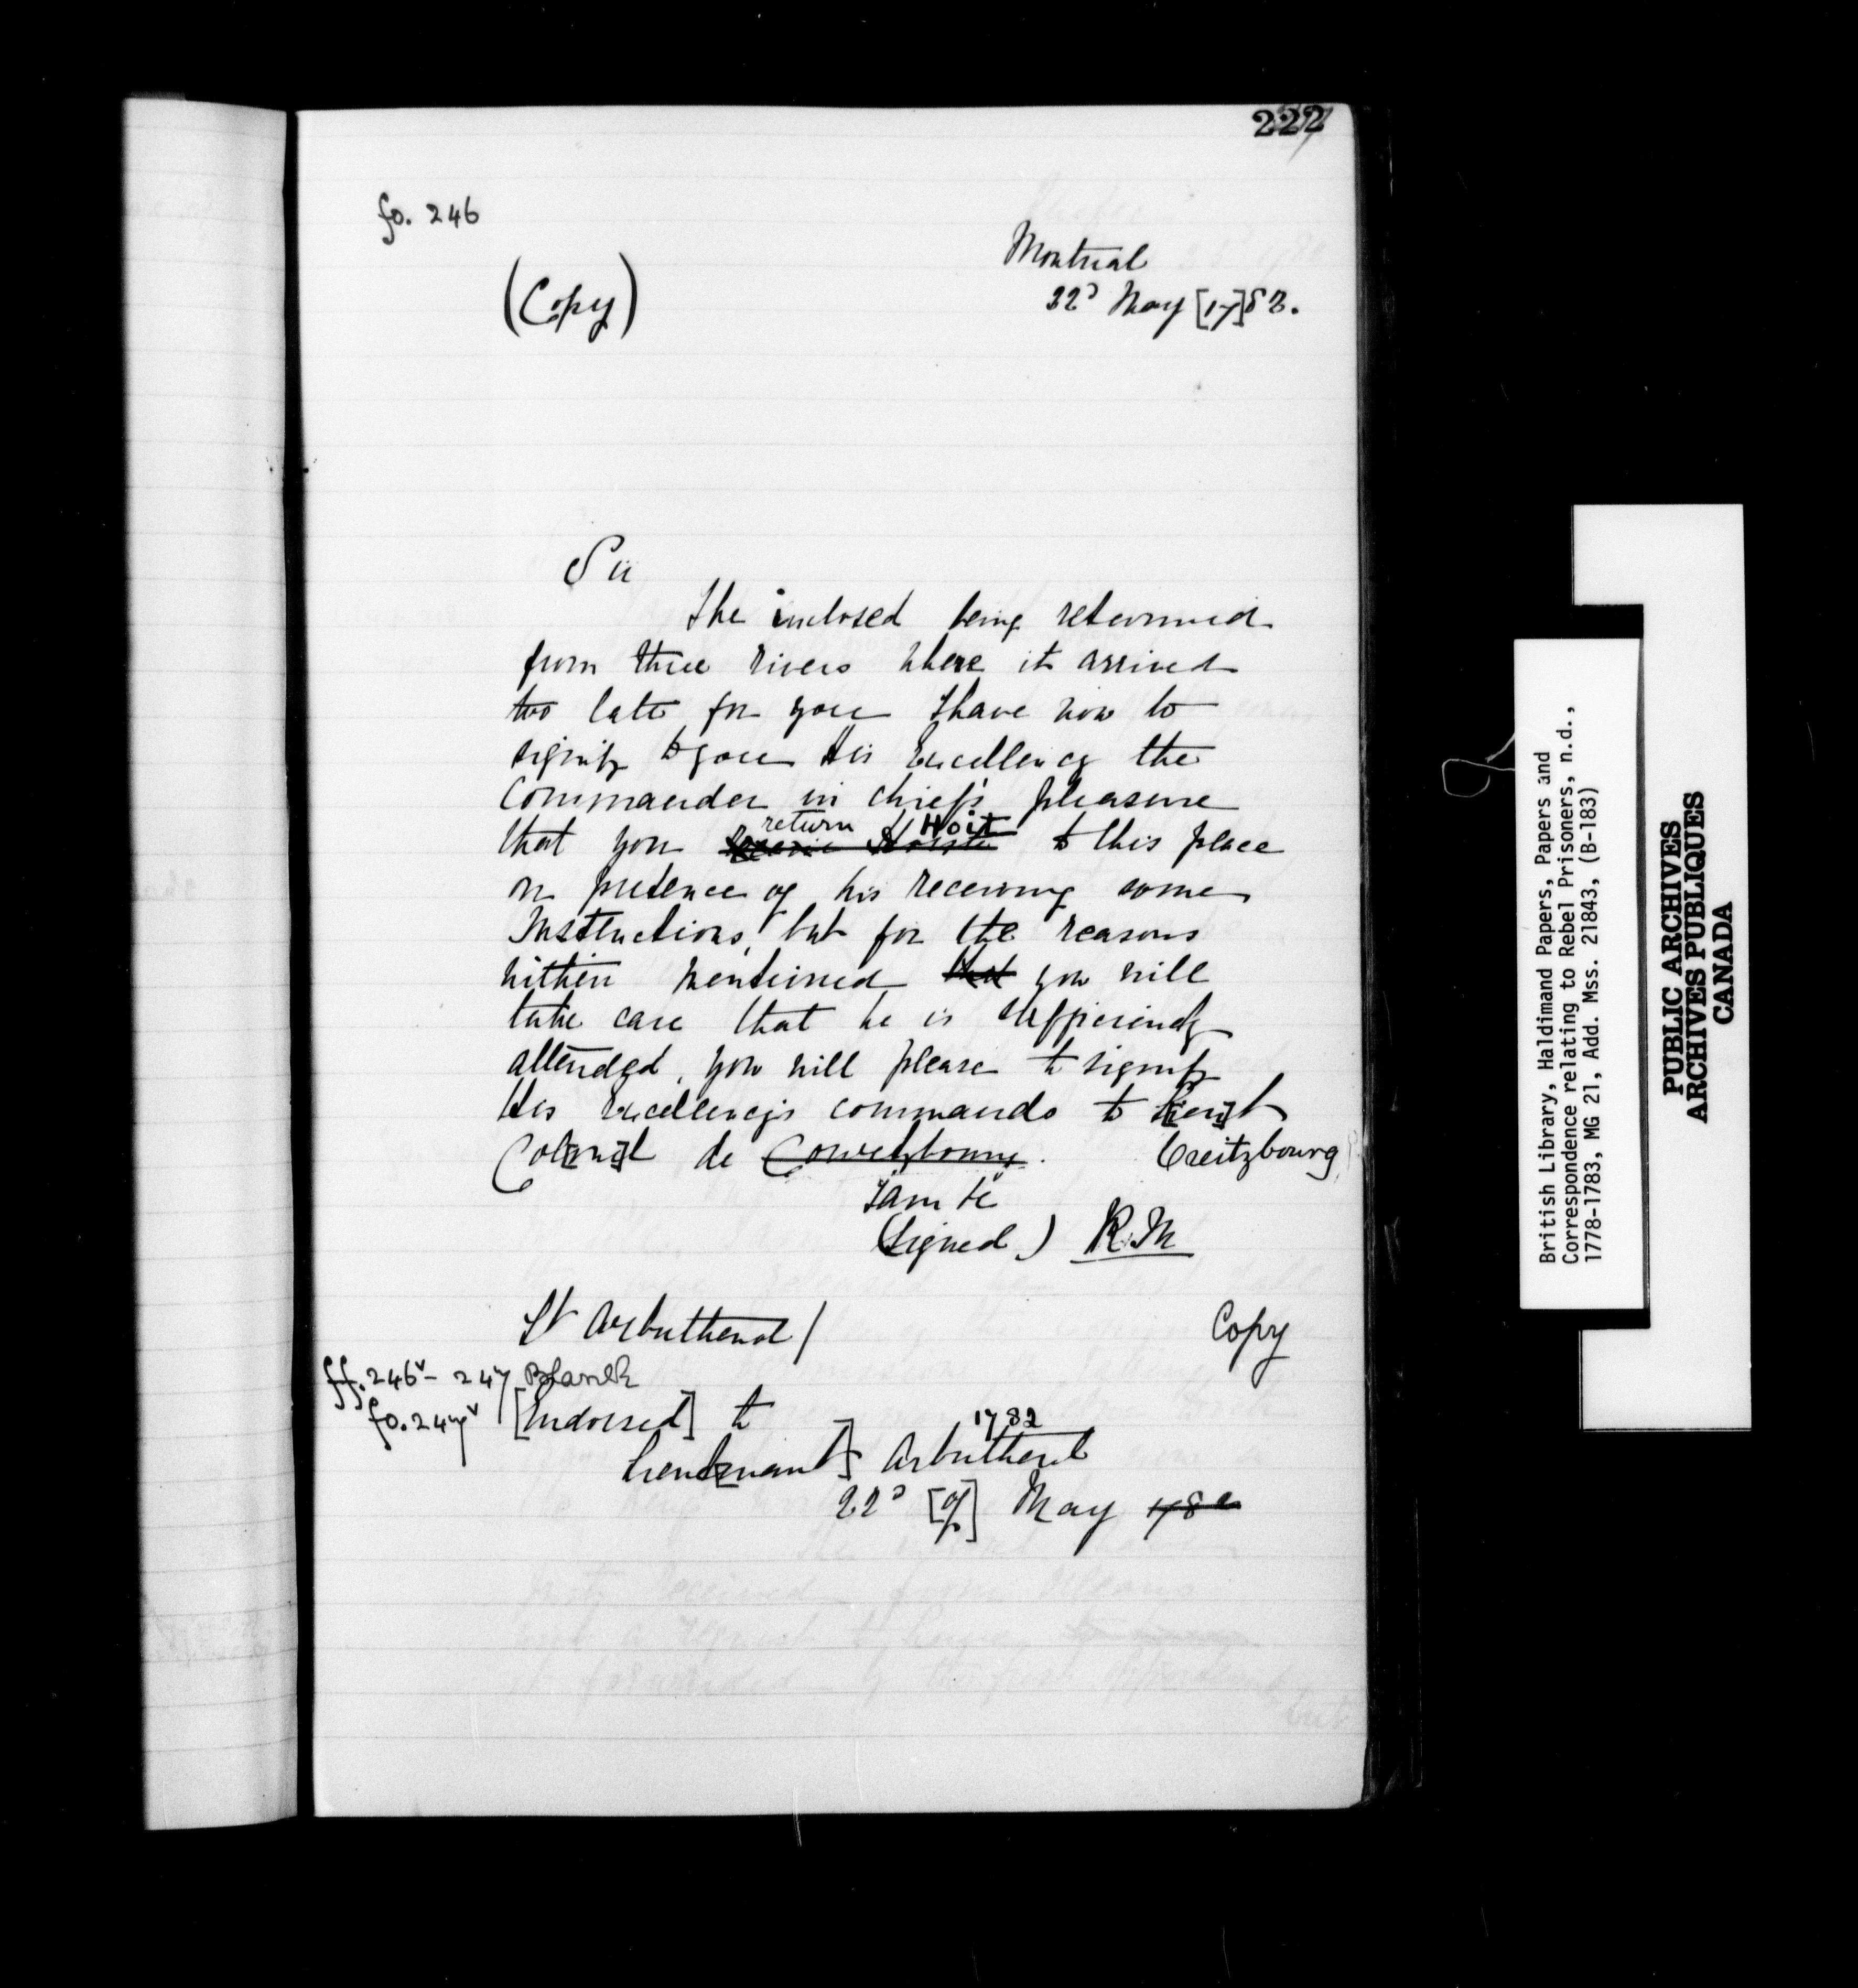 222
fo. 246
Montreal
(Copy)
22d May [17]82.
Sir
The inclosed being returned
from three rivers where it arrived
too late for you I have now to
signify to you His Excellency the
Commander in chief's pleasure
return Hoit
that you to this place
on pretence of his receiving some
Instructions, but for the reasons
within mentioned that you will
take care that he is sufficiently
attended, you will please to signify
His Excellency's commands to Lieu[t]
Col[one]l de Creitzbourg
I am &c
(Signed) R. M
Lt Arbuthnot /
Copy
ff. 246v - 247 Blank
fo. 247v [Endorsed] to
1782
Lieut[enant] Arbuthnot
22d [of] May 1782
British Library, Haldimand Papers, Papers and
Correspondence relating to Rebel Prisoners, n.d.,
1778-1783, MG 21, Add. Mss. 21843, (B-183)
PUBLIC ARCHIVES
ARCHIVES PUBLIQUES
CANADA